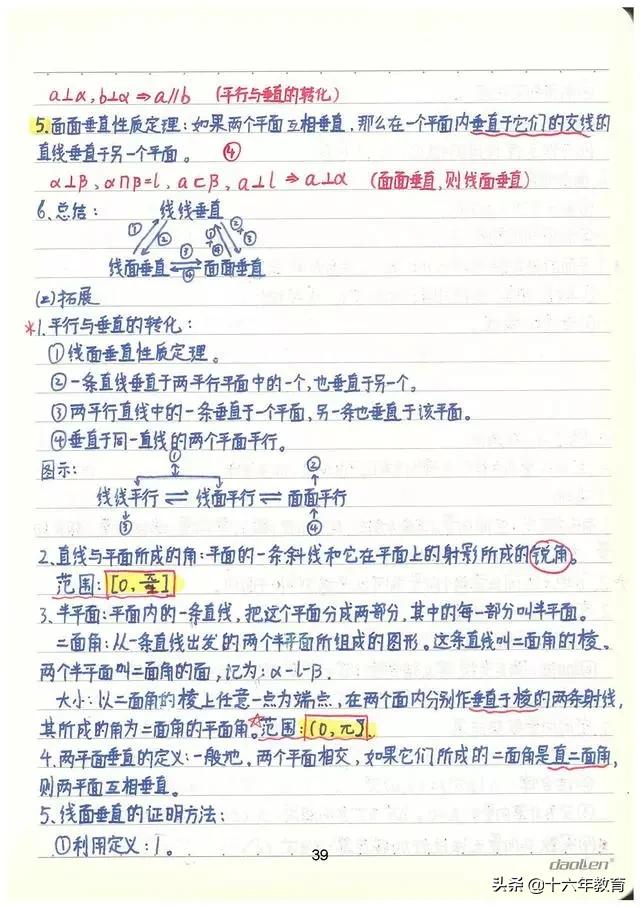 a⊥α, b⊥α ⇒ a∥b (平行与垂直的转化)
5.面面垂直性质定理:如果两个平面互相垂直,那么在一个平面内垂直于它们的交线的
直线垂直于另一个平面。 ④
α⊥β, α∩β=l, a⊂β, a⊥l ⇒ a⊥α (面面垂直,则线面垂直)
6.总结: 线线垂直
① ② ① ④ ② ③
线面垂直 ③ ④ 面面垂直
(二)拓展
*1.平行与垂直的转化:
①线面垂直性质定理。
②一条直线垂直于两平行平面中的一个,也垂直于另一个。
③两平行直线中的一条垂直于一个平面,另一条也垂直于该平面。
④垂直于同一直线的两个平面平行。
图示: ① ②
线线平行 ⇌ 线面平行 ⇌ 面面平行
③ ④
2.直线与平面所成的角:平面的一条斜线和它在平面上的射影所成的锐角。
范围:[0, ]
3.半平面:平面内的一条直线,把这个平面分成两部分,其中的每一部分叫半平面。
二面角:从一条直线出发的两个半平面所组成的图形。这条直线叫二面角的棱。
两个半平面叫二面角的面,记为:α-l-β.
大小:以二面角的棱上任意一点为端点,在两个面内分别作垂直于棱的两条射线,
其所成的角为二面角的平面角。☆范围:(0,π].
4.两平面垂直的定义:一般地,两个平面相交,如果它们所成的二面角是直二面角,
则两平面互相垂直。
5.线面垂直的证明方法:
①利用定义:1。
39
daolen
头条 @十六年教育